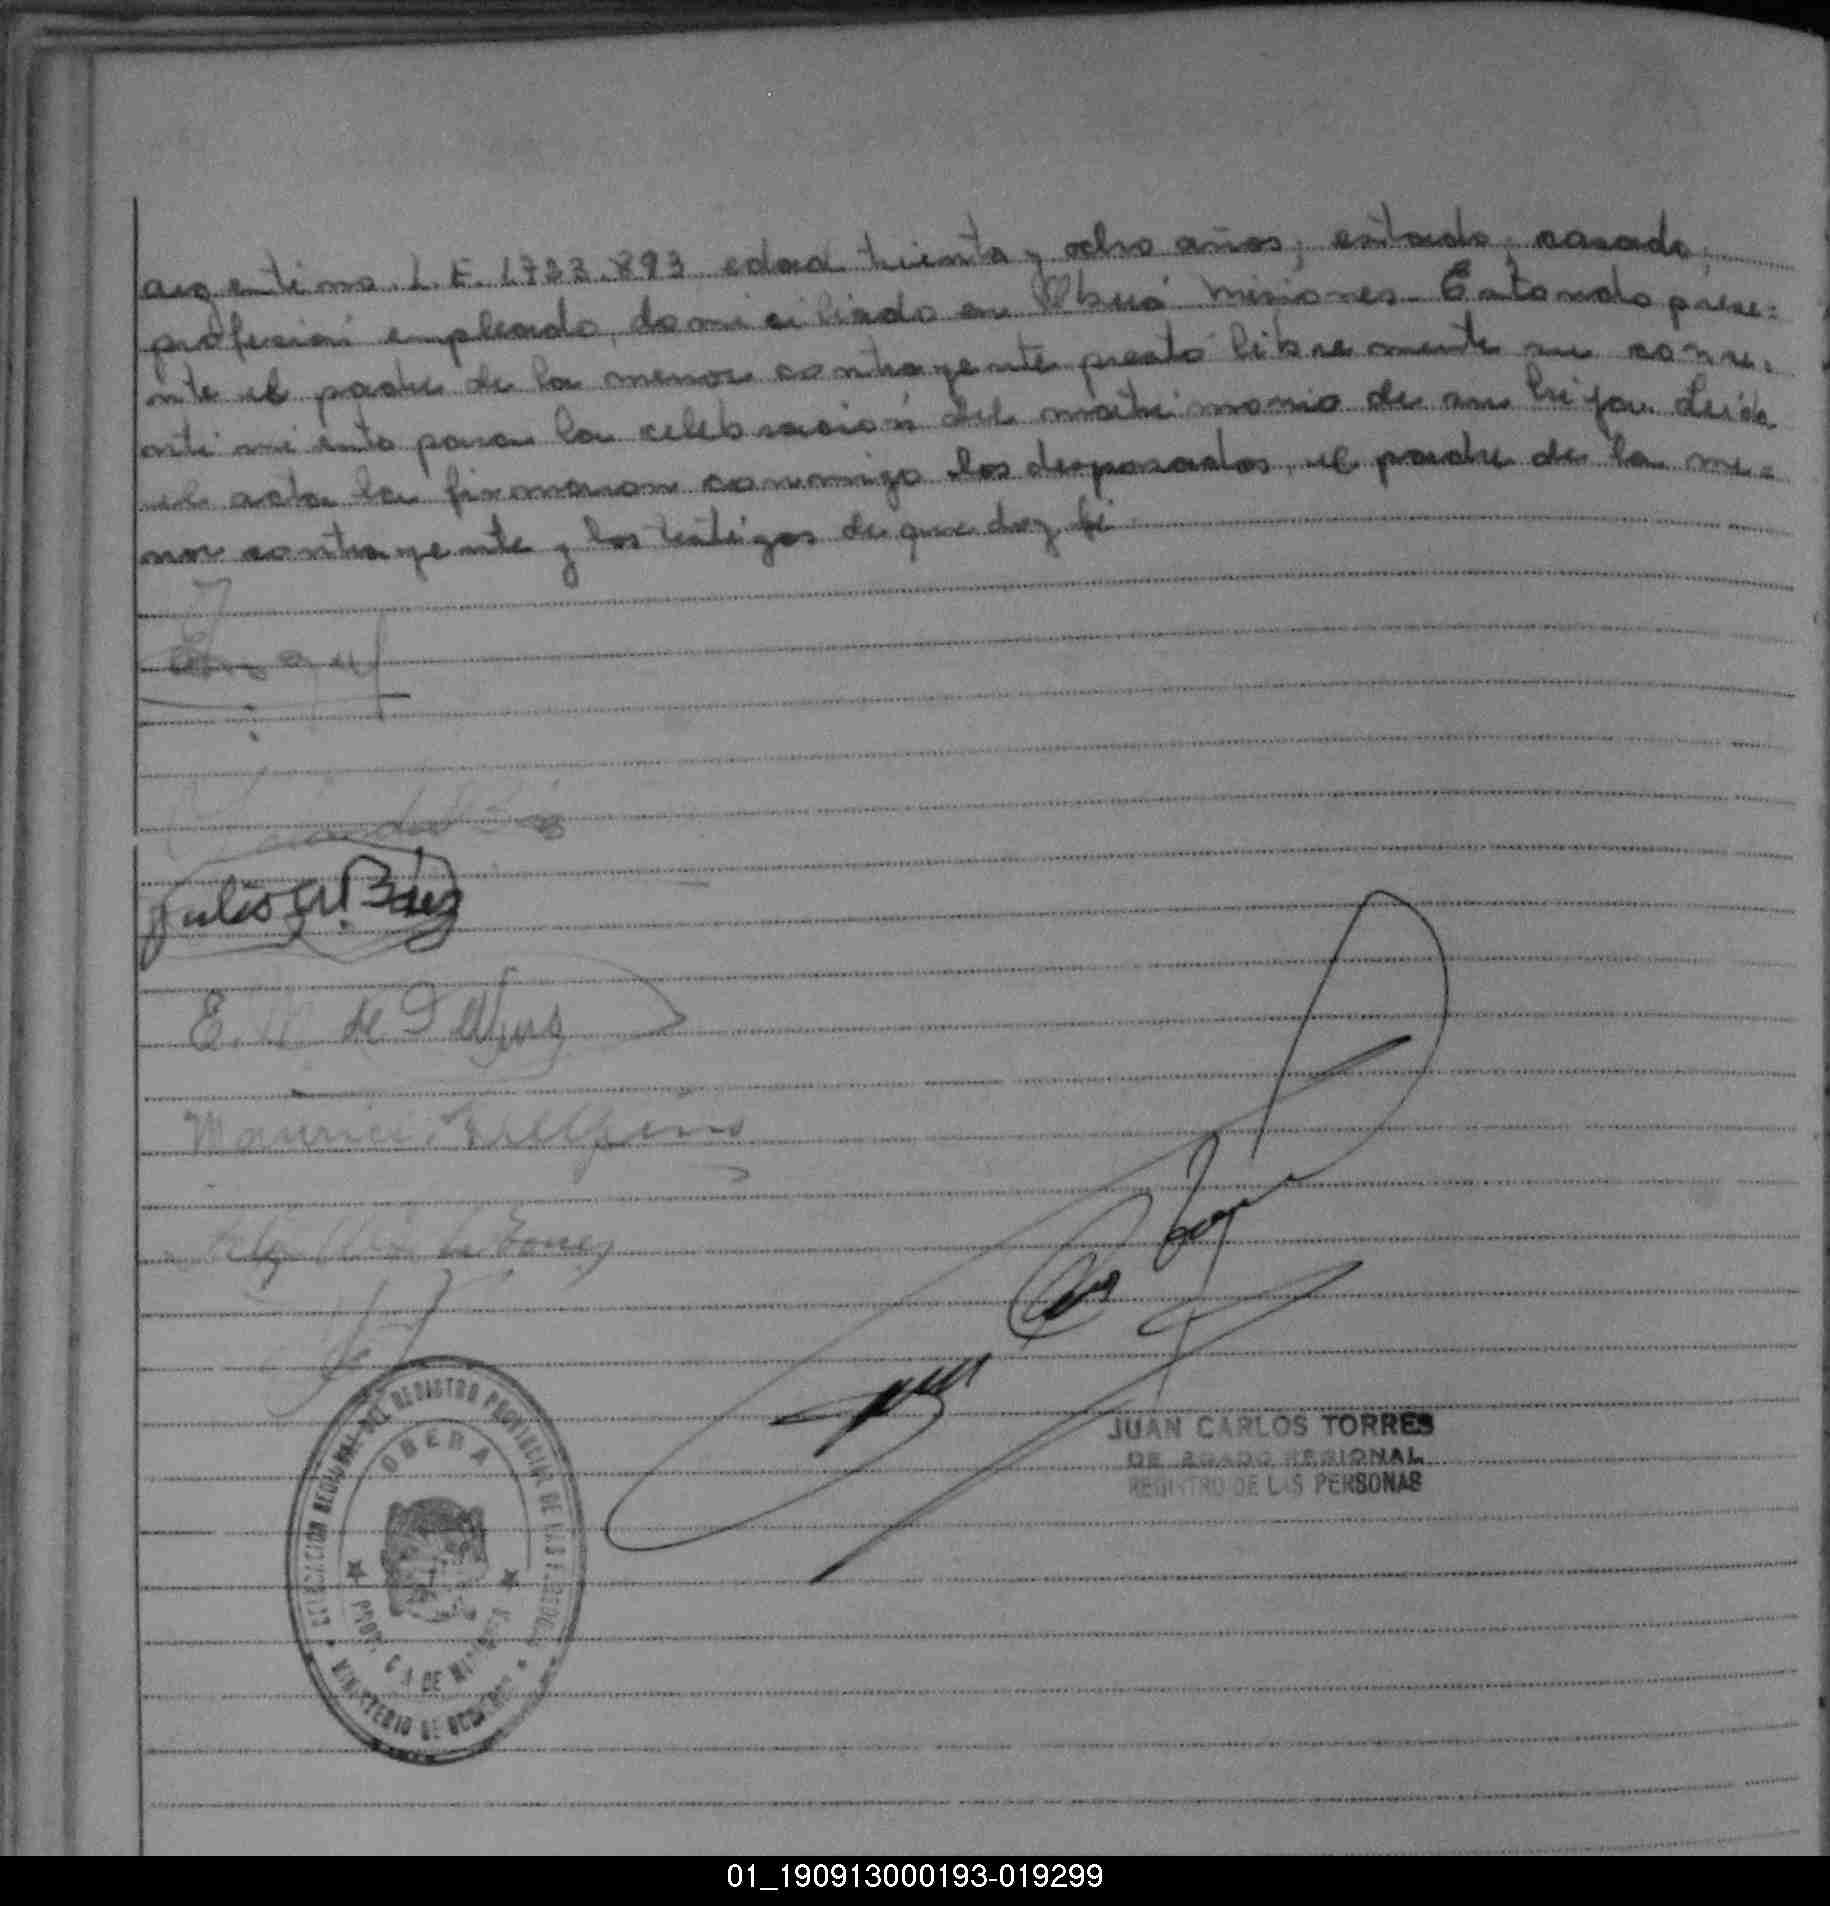 argentino. L. E. 1.733.893 edad treinta y ocho años, estado, casado,
profesión empleado, domiciliado en Oberá Misiones. Estando prese=
nte el padre de la menor contrayente prestó libremente su conse=
ntimiento para la celebración del matrimonio de su hija. Leida
el acta la firmaron conmigo los desposados, el padre de la me=
nor contrayente y los testigos de que doy fé
Julio Báez
E. de
JUAN CARLOS TORRES
REGIONAL
REGISTRO DE LAS PERSONAS
DELEGACION REGIONAL DEL REGISTRO PROVINCIAL DE LAS PERSONAS
OBERA
PROVINCIA DE MISIONES
MINISTERIO DE GOBIERNO
01_190913000193-019299